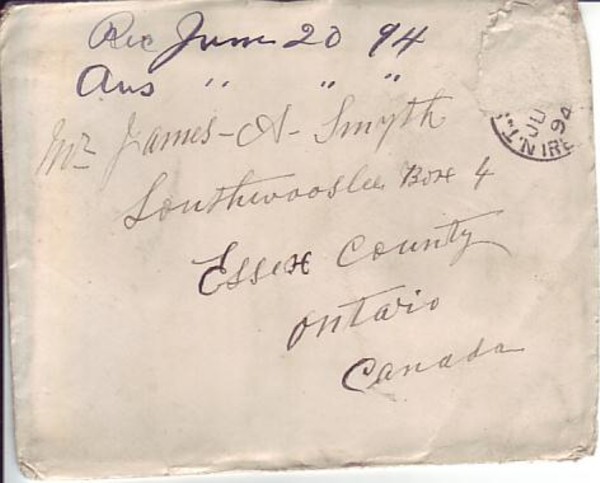 Rec June 20 94
Ans " " "
Mr James-A-Smyth
Southwooslee Box 4
Essex County
Ontario
Canada
JU
94